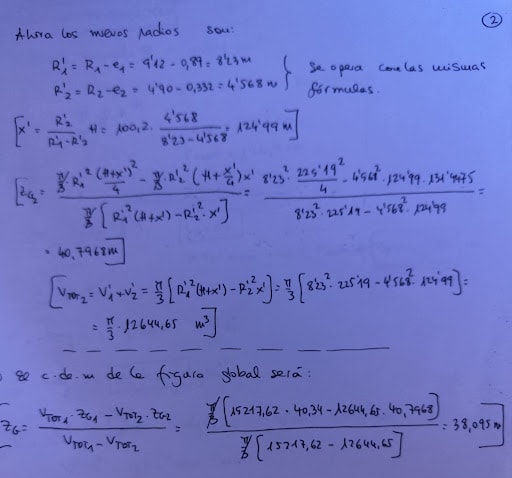 ②
Ahora los nuevos radios son:
R₁' = R₁ - e₁ = 9'12 - 0,89 = 8'23 m
R₂' = R₂ - e₂ = 4'90 - 0,332 = 4'568 m } Se opera con las mismas fórmulas.
[x' = R₂' / (R₁' - R₂') · H = 100,2 · 4'568 / (8'23 - 4'568) = 124'99 m]
[Z_G₂ = (π/3 R₁'² (H+x')²/4 - π/3 R₂'² (H + x'/4) x') / (π/3 [R₁'² (H+x') - R₂'² · x']) = (8'23² · 225'19²/4 - 4'568² · 124'99 · 131'4475) / (8'23² · 225'19 - 4'568² · 124'99) =
= 40,7968 m]
[V_TOT₂ = V₁' + V₂' = π/3 [R₁'² (H+x') - R₂'² x'] = π/3 [8'23² · 225'19 - 4'568² · 124'99] =
= π/3 · 12644,65 m³]
El c. de m de la figura global será:
Z_G = (V_TOT₁ · Z_G₁ - V_TOT₂ · Z_G₂) / (V_TOT₁ - V_TOT₂) = (π/3 [15217,62 · 40,34 - 12644,65 · 40,7968]) / (π/3 [15217,62 - 12644,65]) = 38,095 m]